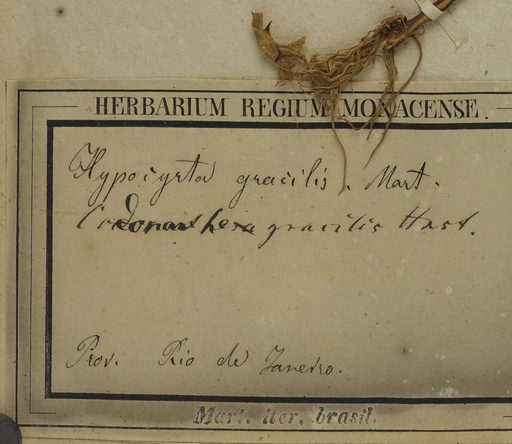 HERBARIUM REGIUM MONACENSE.
Hypocyrta gracilis. Mart.
Codonanthera gracilis Hnst.
Prov. Rio de Janeiro.
Mart. iter. brasil.